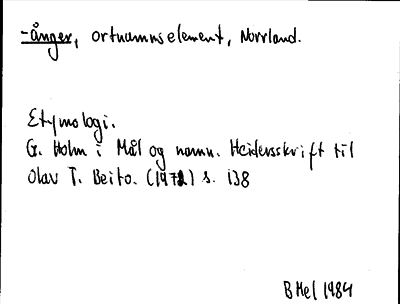 -ånger, ortnamnselement, Norrland.
Etymologi.
G. Holm i Mål og namn. Heidersskrift til
Olav T. Beito. (1971) s. 138
BHel 1984